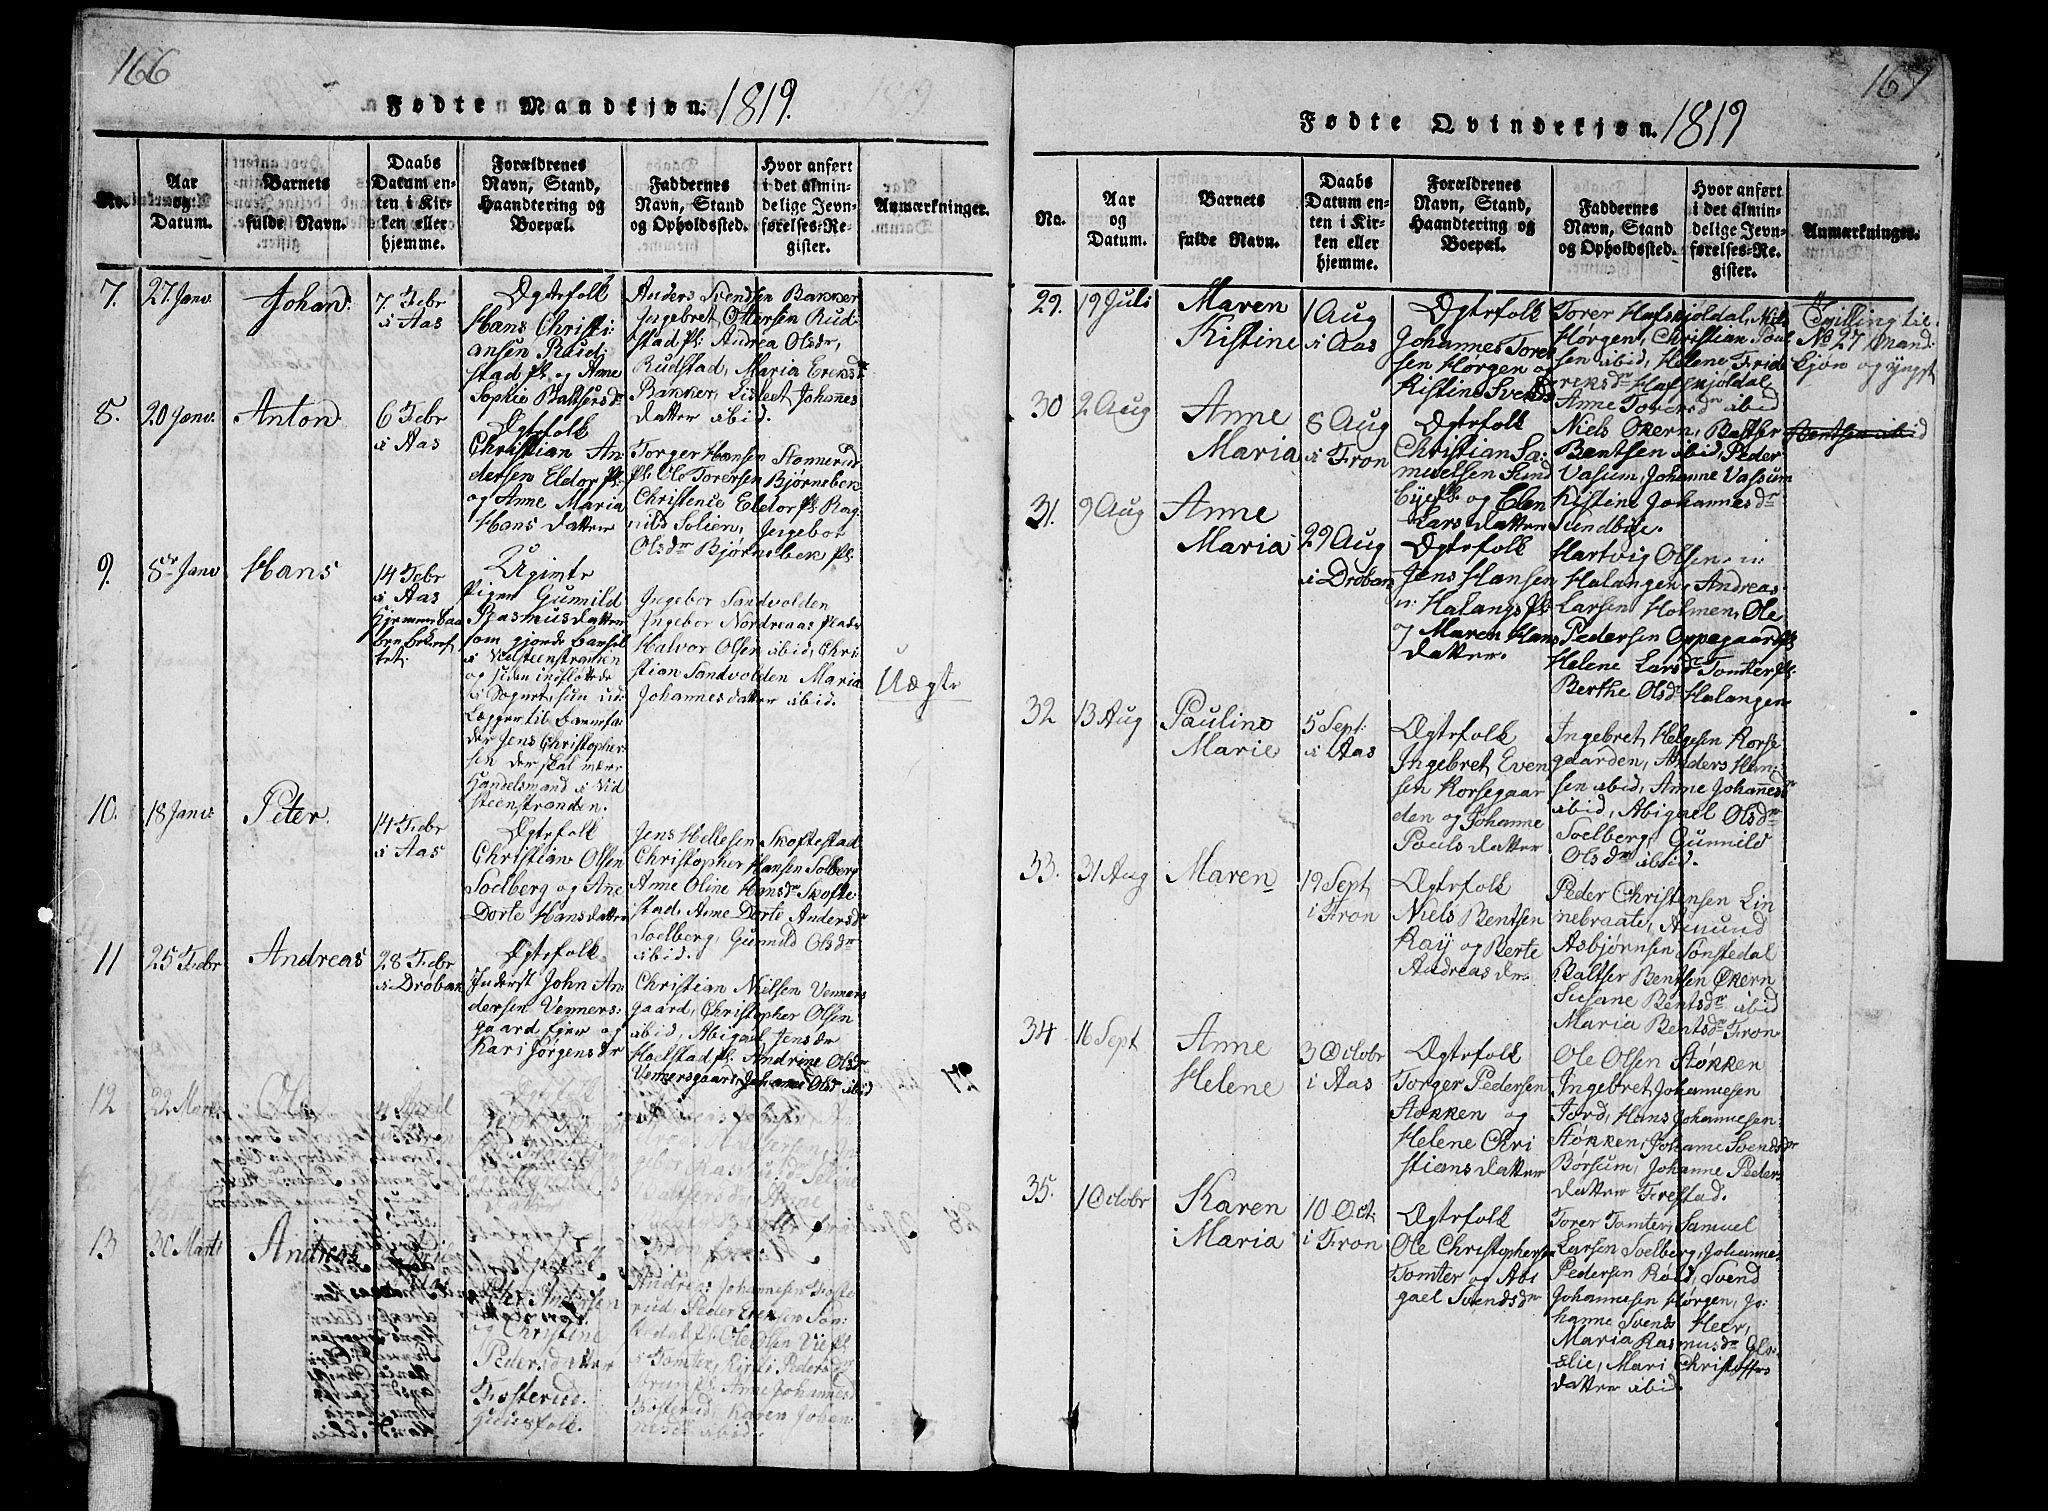 166
Fødte Mandkjøn. 1819.
No.
Aar
og
Datum.
Barnets
fulde Navn.
Daabs
Datum en-
ten i Kir-
ken eller
hjemme.
Forældrenes
Navn, Stand,
Haandtering og
Boepæl.
Faddernes
Navn, Stand
og Opholdssted.
Hvor anført
i det almin-
delige Jevn-
førelses-Re-
gister.
Anmærkninger.
7.
27 Janv.
Johan
7. Febr
i Aas
Ægtefolk
Hans Christi-
ansen Rud-
stad pl. og Anne
Sophie Baltsersdr
Anders Svendsen Bakker
Ingebret Ottersen Rud-
stad pl. Andrea Olsdr,
Rudstad, Maria Ericksdr
Bakker, Lisbet Johanes
datter ibid.
8.
20 Janv.
Anton
6 Febr
i Aas
Ægtefolk
Christian An-
dersen Eldor pl.
og Anne Maria
Hans datter
Torger Hansen Stonnerud
pl. Ole Torersen Bjørnebek
Christence Eldor pl. Rag-
nild Solien, Ingebor
Olsdr Bjørnebek pl.
9.
8de Janv
Hans
14 Febr
i Aas
Hjemmedaa-
ben bekref-
tet.
Ugimte
Pigen Gunnild
Rasmusdatter
som gjorde Barsel
i Vidsteenstranden
og siden indflöttede
i Sognet, hun ud-
lægger til barnefa-
der Jens Christopher-
sen der skal være
Handelsmand i Vid-
steenstranden.
Ingebor Sandvolden
Ingebor Nordreaas plads
Halvor Olsen ibid, Chri-
stian Sandvolden Maria
Johannesdatter ibid.
Uægte
10.
18 Janv.
Peter.
14 Febr
i Aas
Ægtefolk
Christian Olsen
Soelberg og Ane
Dorte Hansdatter
Jens Hellesen Skoftestad
Christopher Hansen Solberg
Anne Oline Hansdr Skofte-
stad, Anne Dorte Andersdr
Soelberg, Gunnild Olsdr
ibid.
11
25 Febr
Andreas
28 Febr
i Drøbak
Ægtefolk
Inderst John An-
dersen Venners-
gaard Ejer og
Kari Jørgensdr
Christian Nielsen Venners-
gaard, Christopher Olsen
ibid, Abigael Jensdr
Hoelstad pl. Andrine Olsdr
Vennersgaard, Johanne Olsdr ibid
12
22 Marts
Ole
4 April
Ægtefolk
13
30 Marts
Andreas
Ægtefolk
Peder Andersen
og Christine
Pedersdatter
Fosterud
Huusfolk.
Andreas Johannesen Foste-
rud, Peder Ericksen Søn-
stedal pl. Ole Olsen Vie pl.
i Tomter, Kirsti Pedersdr
Brun pl. Anne Johannesdr
Fosterud, Karen Johan-
nesdr ibid.
167
Fødte Qvindekjøn. 1819
No.
Aar
og
Datum.
Barnets
fulde Navn.
Daabs
Datum en-
ten i Kir-
ken eller
hjemme.
Forældrenes
Navn, Stand,
Haandtering og
Boepæl.
Faddernes
Navn, Stand
og Opholdssted.
Hvor anført
i det almin-
delige Jevn-
førelses-Re-
gister.
Anmærkninger.
29.
19 Juli
Maren
Kistine
1 Aug
i Aas
Ægtefolk
Johannes Torer
sen Hørgen og
Kistine Svendsdr
Torer Hafskjoldal, Niels
Hørgen, Christian Poul
sen ibid, Helene Fride
reksdr Hafskjoldal
Anne Torersdr ibid
Tvilling til
No 27 Mand-
kjøn og yngst
30
2 Aug
Anne
Maria
8 Aug
i Fron
Ægtefolk
Christian Sa-
muelsen Sund
bye pl. og Elen
Lars datter
Niels Økern, Baltser
Bentsen ibid
Bentsen ibid, Peder
Vassum, Johanne Vassum
Kistine Johannesdr
Sundbye.
31.
9 Aug
Anne
Maria
29 Aug
i Drøbak
Ægtefolk
Jens Hansen
Halangs pl.
og Maren Hans
datter.
Hartvig Olsen
Halangen, Andreas
Larsen Holmen, Ole
Pedersen Oppegaard pl.
Helene Larsdr Tomter pl.
Berthe Olsdr Halangen
32
13 Aug
Pauline
Marie
5 Sept.
i Aas
Ægtefolk
Ingebret Even
sen Korsegaar
den og Johanne
Pouls datter
Ingebret Helgesen Korse
gaarden, Anders Han-
sen ibid, Anne Johanesdr
ibid, Abigael Olsdr
Soelberg, Gunnild
Olsdr ibid.
33.
31 Aug
Maren
19 Sept
i Fron
Ægtefolk
Niels Bentsen
Ray og Berte
Andreasdr.
Peder Christensen Lin
nebraate, Amund
Asbjørnsen Sønstedal
Baltser Bentsen Økern
Susane Bentsdr ibid
Maria Bentsdr Fron
34
16 Sept
Anne
Helene
3 Octobr
i Aas
Ægtefolk
Torger Pedersen
Støkken og
Helene Chri
stians datter
Ole Olsen Støkken
Ingebret Johannesen
Ford, Hans Johannesen
Støkken, Johanne Svendsdr
Børsum, Johanne Peders
datter Frestad.
35.
1 Octobr
Karen
Maria
10 Oct
i Fron
Ægtefolk
Ole Christophersen
Tomter og Abi
gael Svendsdr
Torer Tomter, Samuel
Larsen Soelberg, Johannes
Pedersen Røid, Svend
Johannesen Hørgen, Jo-
hanne Svends Heer,
Maria Rasmusdr Ols-
ælie, Mari Christoffers
datter ibid.